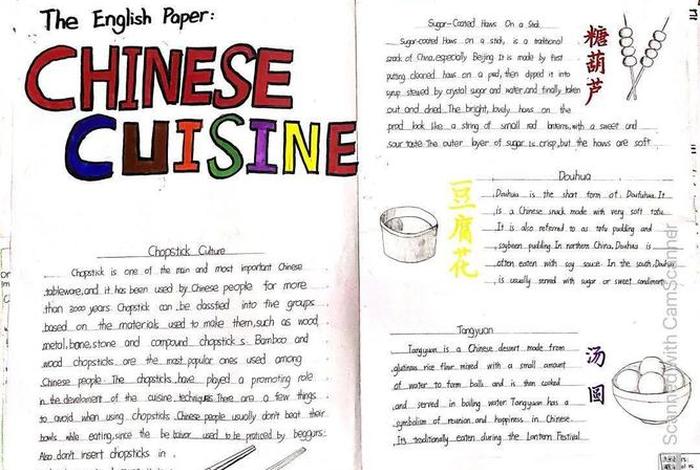 The English Paper:
CHINESE
CUISINE
Chopstick Culture
Chopstick is one of the main and most important Chinese
tableware,and it has been used by Chinese people for more
than 3000 years Chopstick can be classfied into five groups
based on the materials used to make them,such as wood,
metal,bone,stone and compound chopstick s. Bamboo and
wood chopsticks are the most popular ones used among
Chinese people The chopsticks have played a promoting role
in the development of the cuisine techniques There are a few things
to avoid when using chopsticks Chinese people usually don't beat their
bowls while eating,since the be used to be practiced by beggars.
Also don't insert chopsticks in
Sugar-Coated Haws On a Stick
Sugar-coated Haws on a stick, is a traditional
snack of China,especially Beijing It is made by first
putting cleaned haws on a prod, then dipped it into
syrup stewed by crystal sugar and water,and finally taken
out and dried The bright, lovely haws on the
prod look like a string of small red lanterns,with a sweet and
sour taste The outer layer of sugar is crisp,but the haws are soft
糖葫芦
Douhua
Douhua is the short form of Doufuhua It
is a Chinese snack made with very soft tofu
It is also referred to as tofu pudding and
soybean pudding. In northern China, Douhua is
often eaten with soy sauce In the south,Douhua
is usually served with sugar or sweet condiment
豆腐花
Tangyuan
Tangyuan is a Chinese dessert made from
glutinous rice flour mixed with a small amount
of water to form balls and is then cooked
and served in boiling water. Tangyuan has a
symbolism of reunion and happiness in Chinese
Its traditionally eaten during the Lantern Festival
汤圆
Scanned with CamScanner